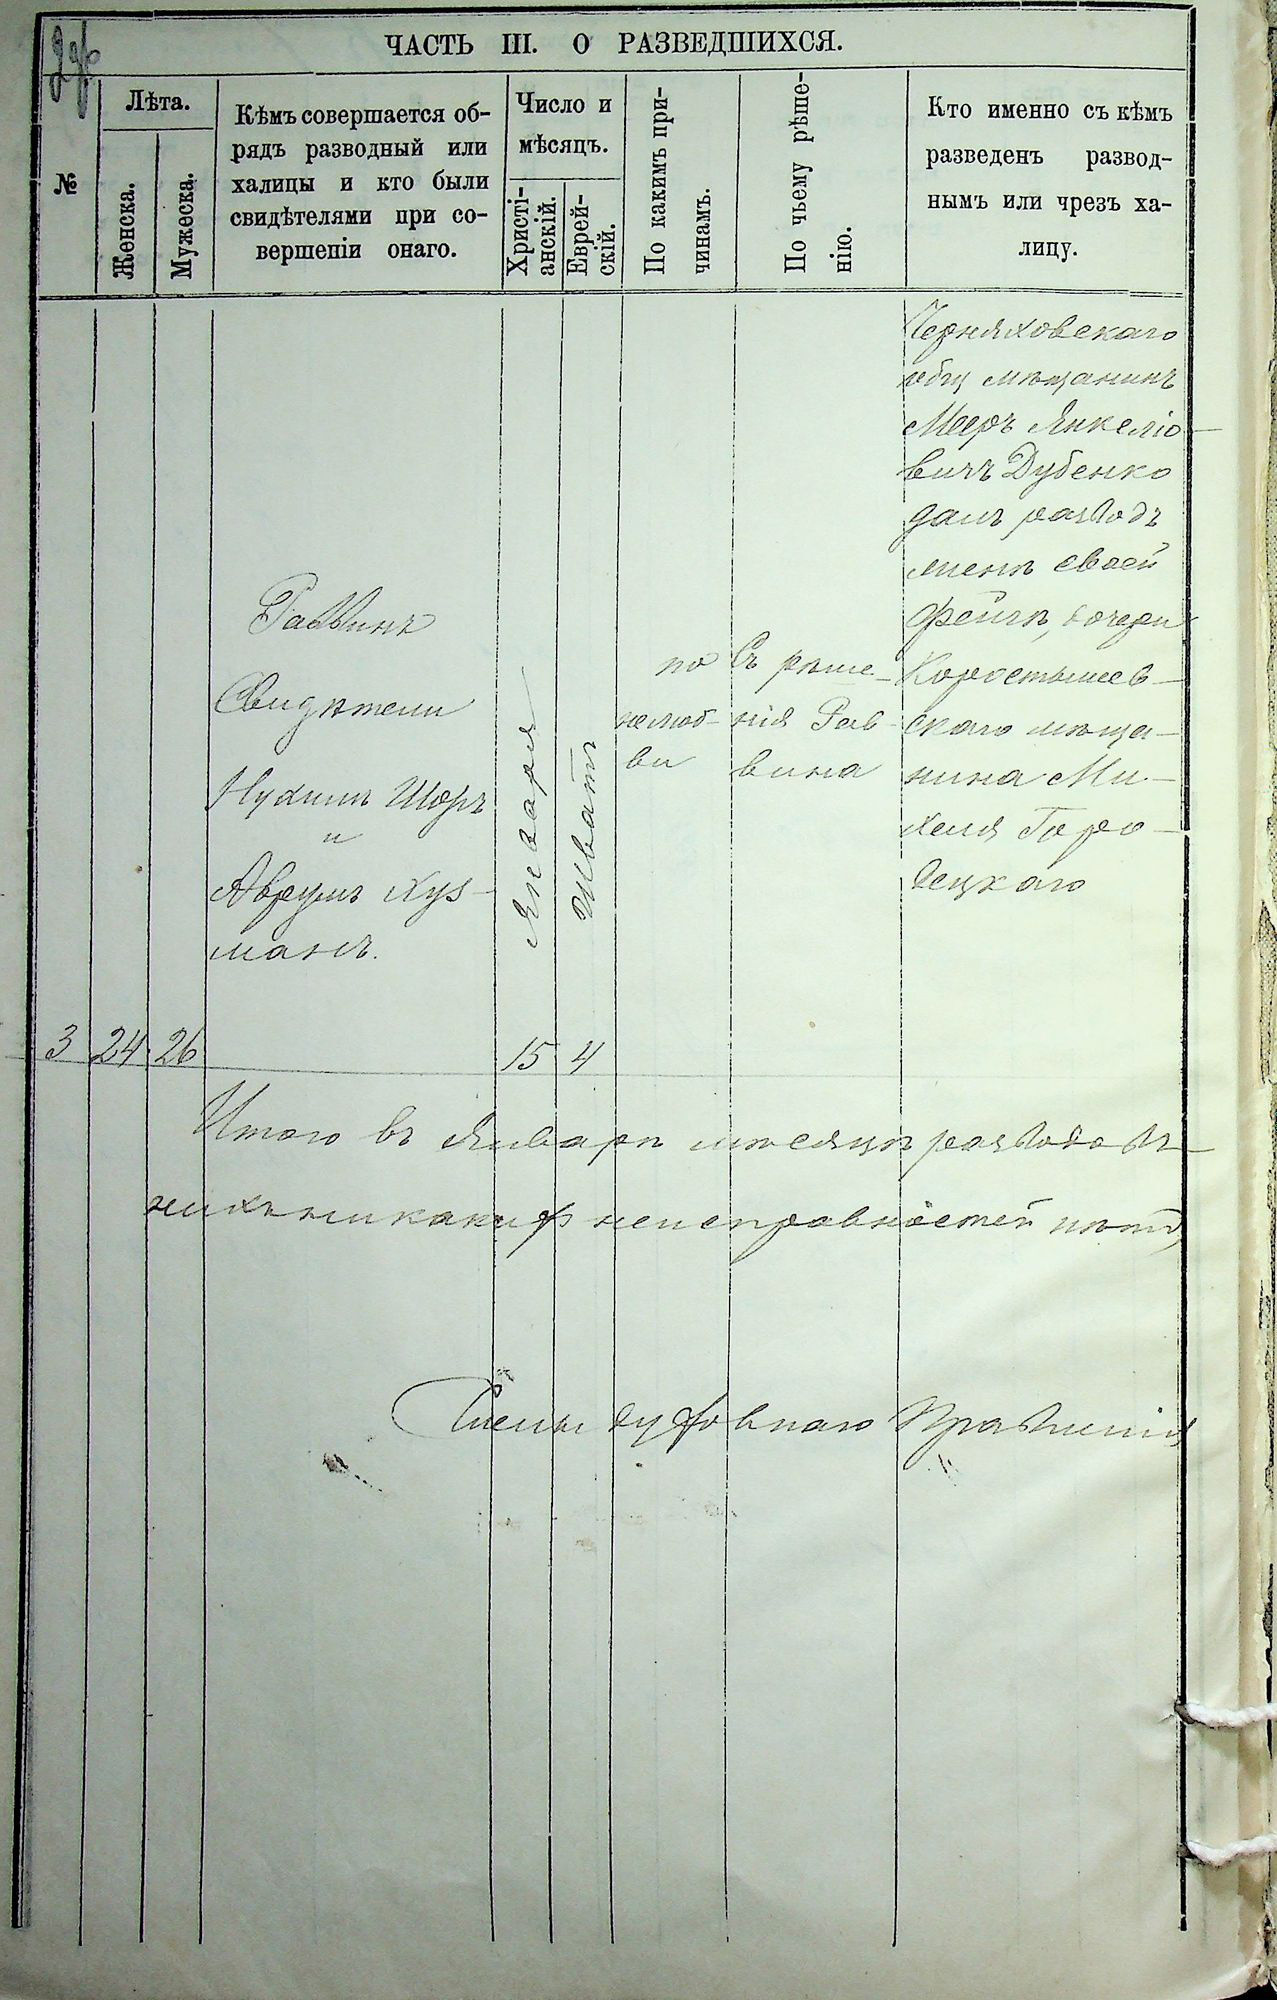 ЧАСТЬ III. О РАЗВЕДШИХСЯ.
№
Лѣта.
Женска.
Мужеска.
Кѣмъ совершается об-
рядъ разводный или
халицы и кто были
свидѣтелями при со-
вершеніи онаго.
Число и
мѣсяцъ.
Христі-
анскій.
Еврей-
скій.
По какимъ при-
чинамъ.
По чьему рѣше-
нію.
Кто именно съ кѣмъ
разведенъ развод-
нымъ или чрезъ ха-
лицу.
3
24
26
Раввинъ
Свидѣтели
Нухимъ Шоръ
и
Аврумъ Куз-
манъ.
Января
15
Шватъ
4
по
нелюб-
ви
Съ рѣше-
нія Рав-
вина
Черняховскаго
общ мѣщанинъ
Мееръ Янкеліо-
вичъ Дубенко
далъ разводъ
женѣ своей
Фейгѣ, дочери
Коростышев-
скаго мѣща-
нина Ми-
хеля Горо-
децкаго
Итого въ Январѣ мѣсяцѣ развода
нихъ никакихъ неисправностей нѣтъ,
Члены духовнаго Правленія